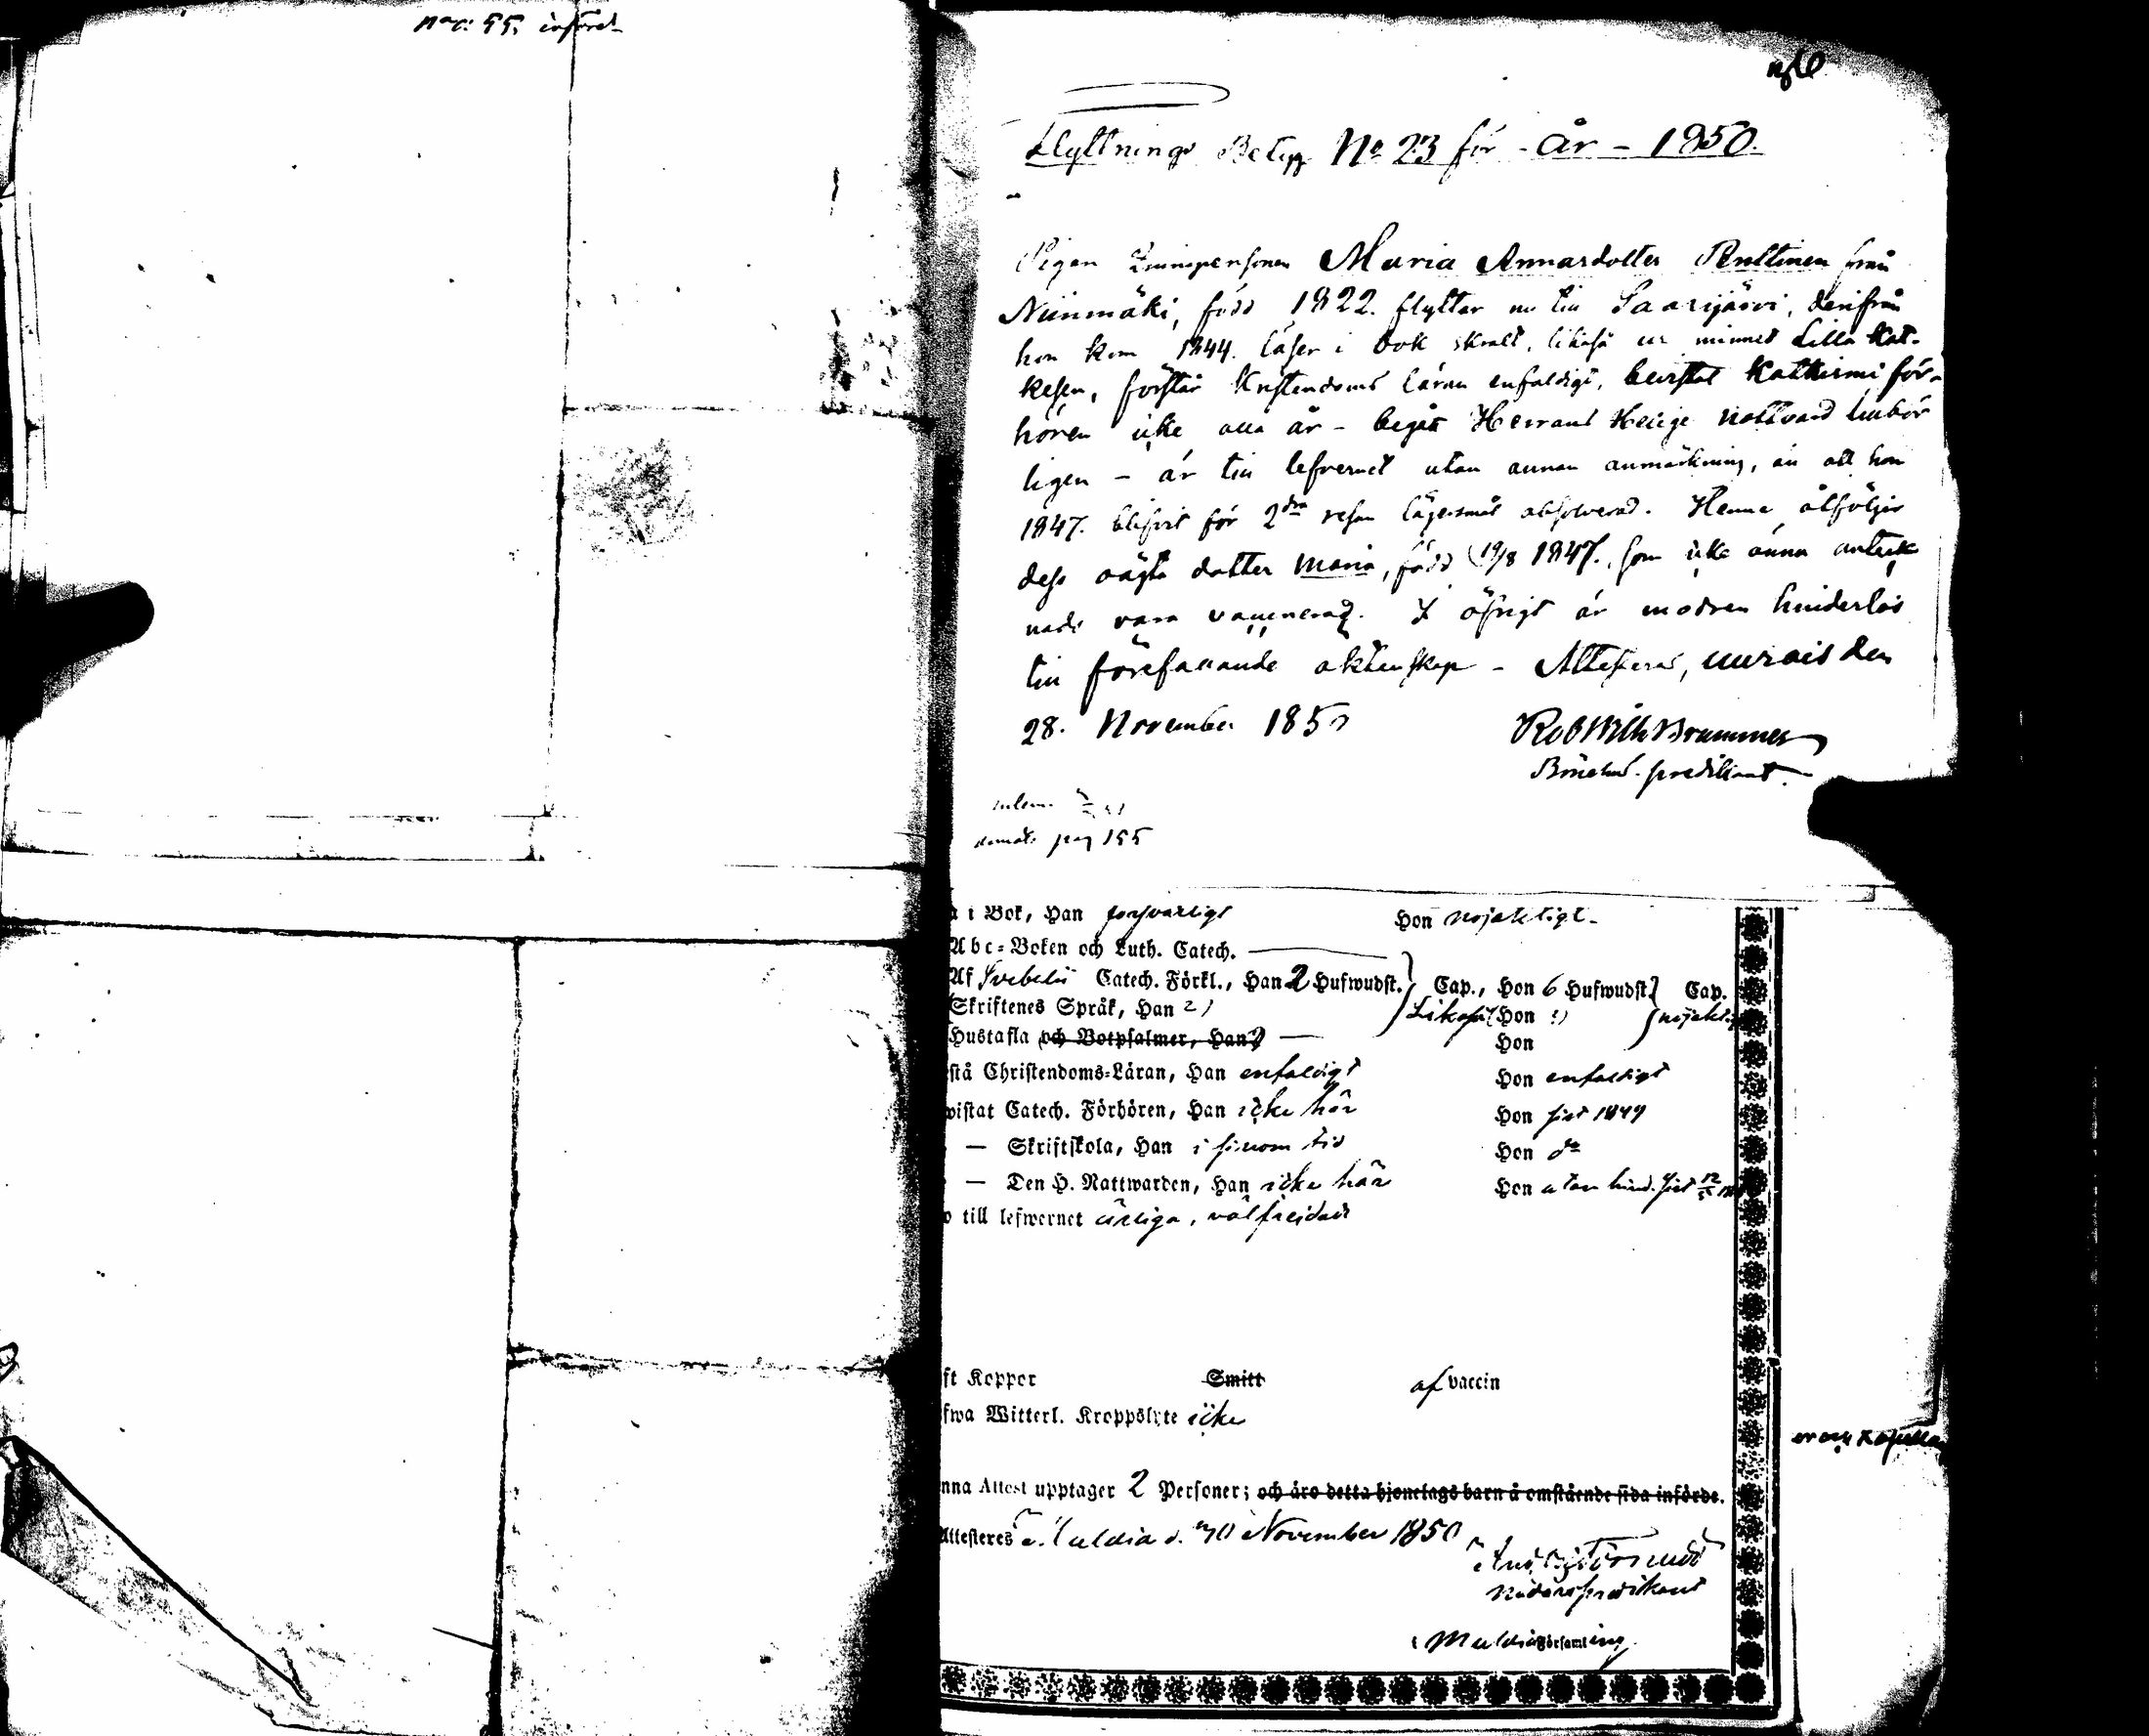 införd
Flyttnings Betyg No 23 för - År - 1850.
Pigan Qvinspersonen Maria Annasdotter Penttinen från
Niinmäki, född 1822. flyttar nu till Saarijärvi, derifrån
hon kom 1844. läser i bok skralt, likaså ur minnet Lilla Kat-
kesen, förstår Kristendoms läran enfaldigt, bevistat Katkismi för-
hören icke alla år - begått Herrans Heliga Nattvard tillbör
ligen - är till lefvernet utan annan anmärkning, än att hon
1847. blifvit för 2dra resan lägersmål absolverad. Henne åtföljer
dess oägta dotter Maria, född 19/8 1847. som icke ännu anteck
nads vara vaccinerad. I öfrigt är modren hinderlös
till förefallande äktenskap - Attesteras, Multia den
28. November 1850
Rob Wilh Brummer
predikant.
pag 155
i Bok, Han försvarligt Hon nöjaktigt.
Abc-Boken och Luth. Catech.
Af Svebelii Catech. Förkl., Han 2 Hufwudst. Cap., Hon 6 Hufwudst. Cap.
Skriftenes Språk, Han 2) Likaså Hon nöjaktigt
Hustafla och Botpsalmer, Han Hon
stå Christendoms-Läran, Han enfaldigt Hon enfaldigt
wistat Catech. Förhören, Han icke här Hon sist 1849
— Skriftskola, Han i sinom tid Hon do
— Den H. Nattwarden, Han icke här Hon utan hind. sist
till lefwernet ärliga, välfrejdade
ft Koppor Smitt af vaccin
fwa Witterl. Kroppslyte icke
nna Attest upptager 2 Personer; och äro detta hjonelags barn å omstående sida införde.
Attesteres November 1850
predikant
i Multia Församling